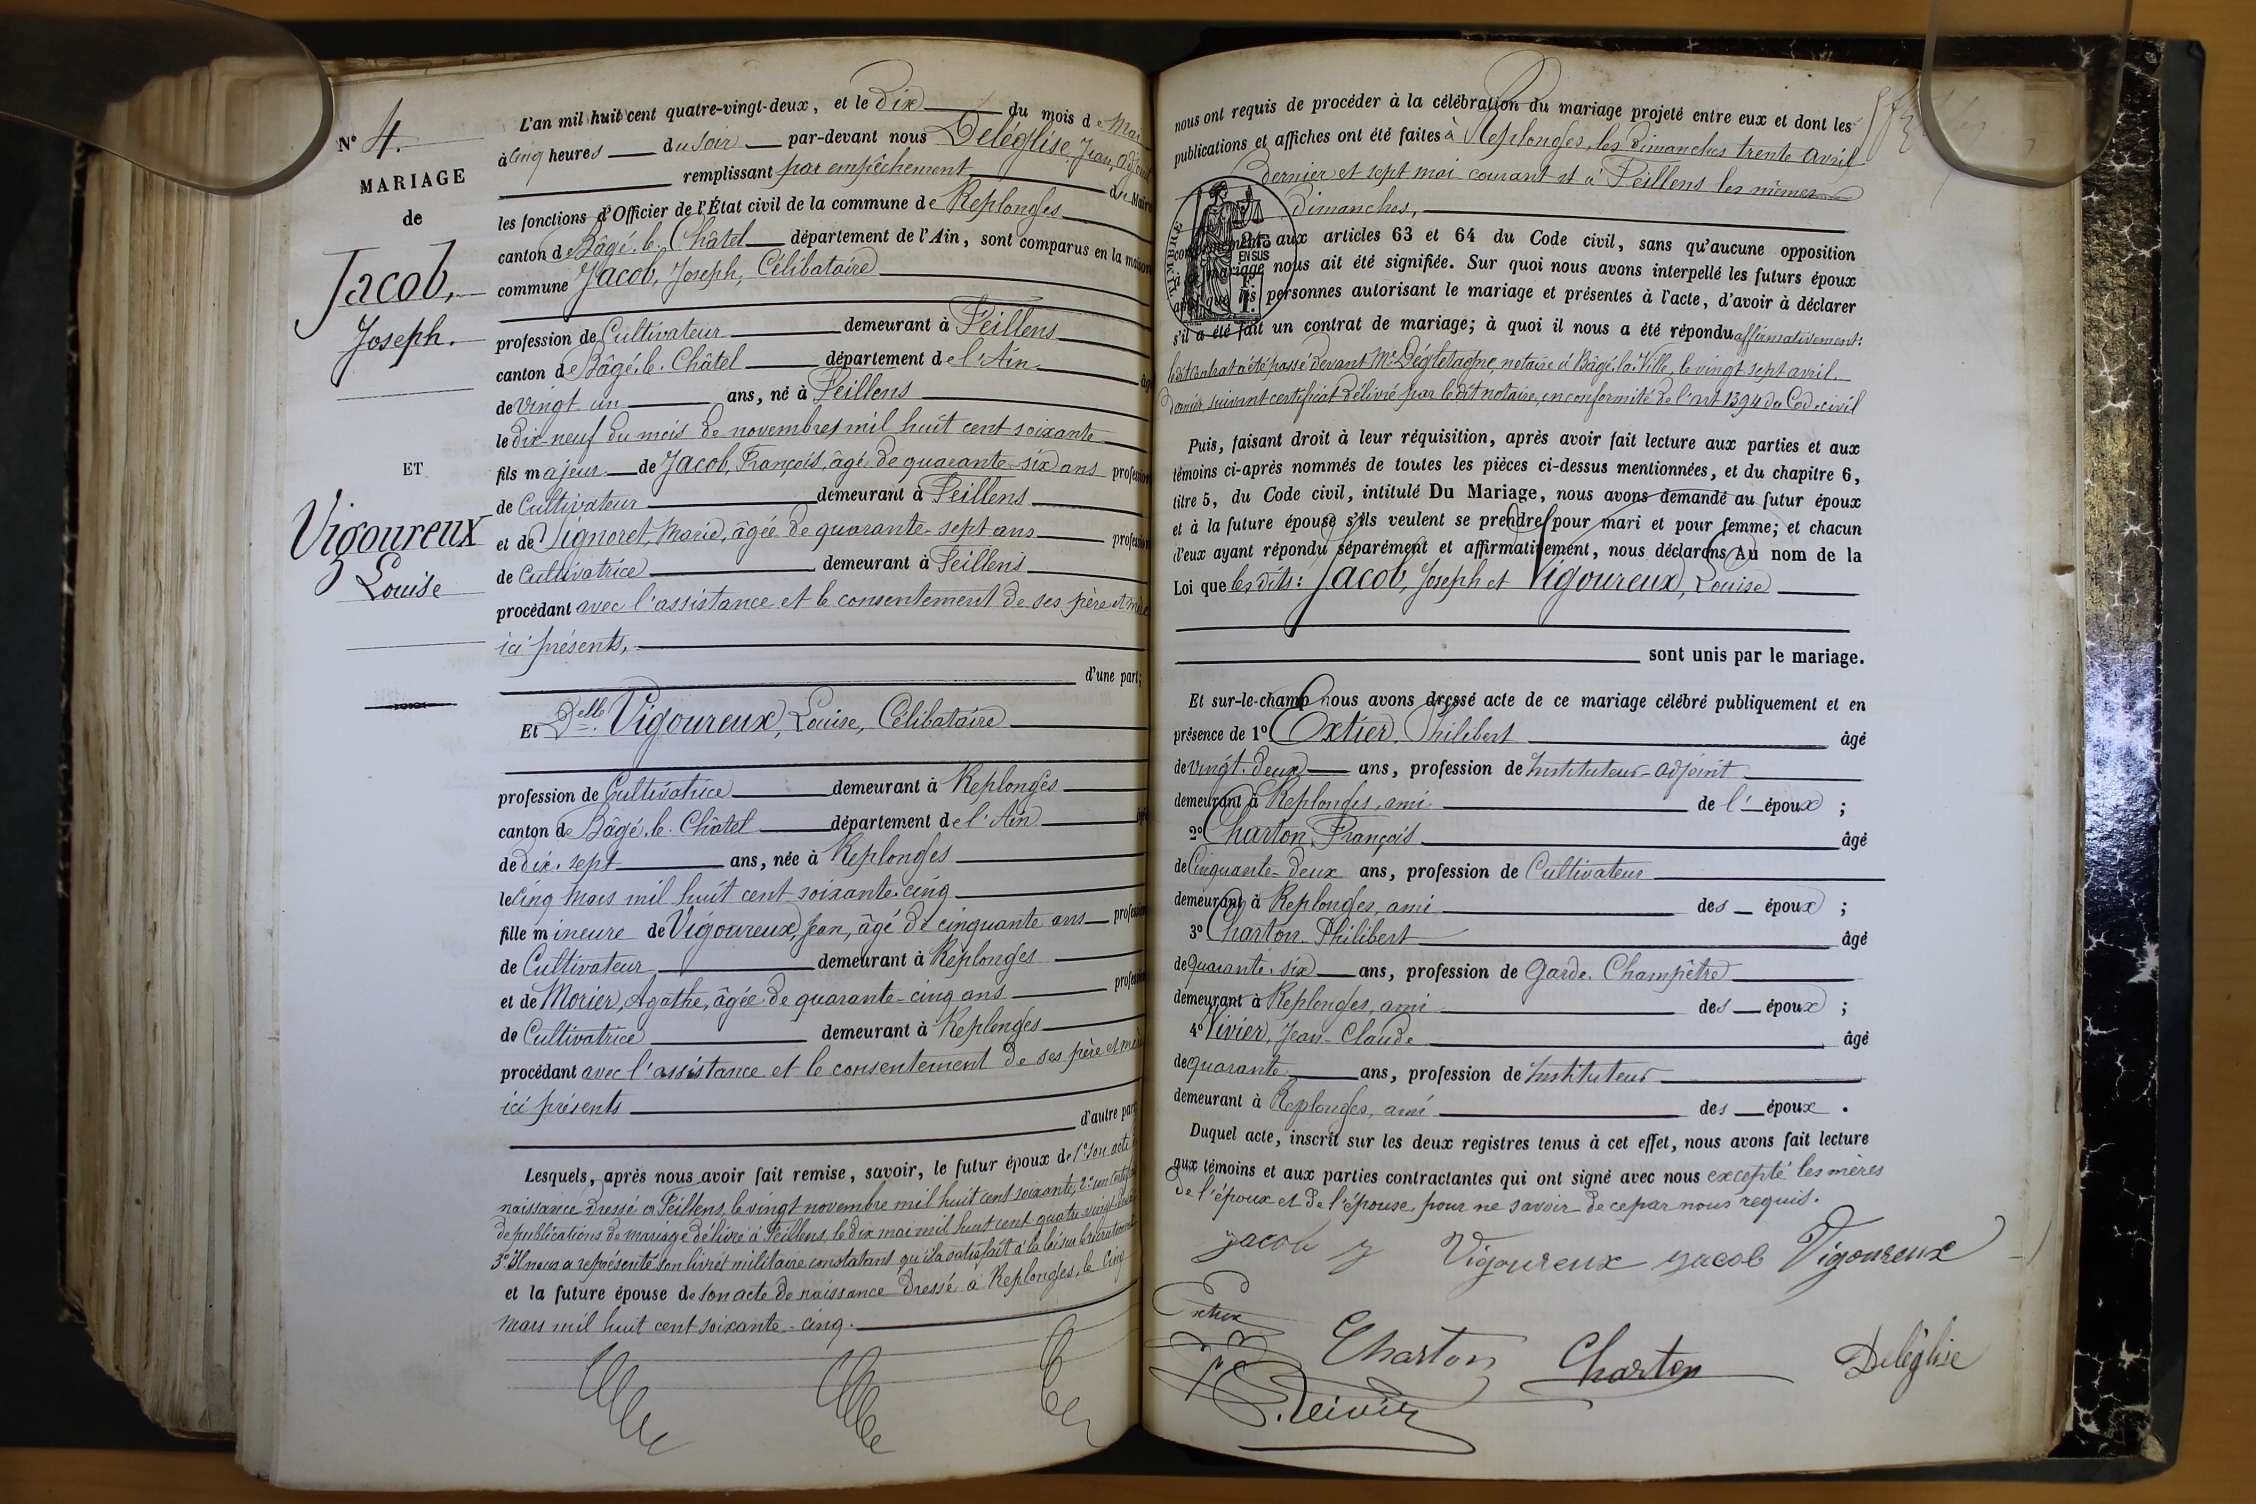 N° 4.
MARIAGE
de
Jacob,
Joseph.
ET
Vigoureux
Louise
L'an mil huit cent quatre-vingt-deux, et le Dix du mois de Mai
à cinq heures du soir par-devant nous Deléglise, Jean, adjoint
remplissant par empêchement du Maire
les fonctions d'Officier de l'État civil de la commune de Replonges
canton de Bâgé-le-Châtel département de l'Ain, sont comparus en la maison
commune Jacob, Joseph, Célibataire
profession de Cultivateur demeurant à Feillens
canton de Bâgé-le-Châtel département de l'Ain âgé
de vingt un ans, né à Feillens
le dix-neuf du mois de novembre mil huit cent soixante
fils majeur de Jacob, François, âgé de quarante-six ans profession
de Cultivateur demeurant à Feillens
et de Signoret, Marie, âgée de quarante-sept ans profession
de Cultivatrice demeurant à Feillens
procédant avec l'assistance et le consentement de ses père et mère
ici présents,
d'une part;
Et Delle Vigoureux, Louise, Célibataire
profession de Cultivatrice demeurant à Replonges
canton de Bâgé-le-Châtel département de l'Ain âgée
de dix-sept ans, née à Replonges
le cinq Mars mil huit cent soixante-cinq
fille mineure de Vigoureux, Jean, âgé de cinquante ans profession
de Cultivateur demeurant à Replonges
et de Morier, Agathe, âgée de quarante-cinq ans profession
de Cultivatrice demeurant à Replonges
procédant avec l'assistance et le consentement de ses père et mère
ici présents
d'autre part
Lesquels, après nous avoir fait remise, savoir, le futur époux de 1° son acte de
naissance dressé à Feillens, le vingt novembre mil huit cent soixante, 2° un certificat
de publications de mariage délivré à Feillens, le dix mai mil huit cent quatre-vingt-deux
3° Il nous a représenté son livret militaire constatant qu'il a satisfait à la loi sur le recrutement
et la future épouse de son acte de naissance dressé à Replonges, le cinq
mars mil huit cent soixante-cinq.
nous ont requis de procéder à la célébration du mariage projeté entre eux et dont les
publications et affiches ont été faites à Replonges, les dimanches trente avril
dernier et sept mai courant et à Feillens les mêmes
dimanches,
TIMBRE
EN SUS
conformément aux articles 63 et 64 du Code civil, sans qu'aucune opposition
à ce mariage nous ait été signifiée. Sur quoi nous avons interpellé les futurs époux
ainsi que les personnes autorisant le mariage et présentes à l'acte, d'avoir à déclarer
s'il a été fait un contrat de mariage; à quoi il nous a été répondu affirmativement:
ledit contrat a été passé devant Me Dégletagne, notaire à Bâgé-la-Ville, le vingt sept avril
dernier, suivant certificat délivré par le dit notaire, en conformité de l'art 1394 du Code civil
Puis, faisant droit à leur réquisition, après avoir fait lecture aux parties et aux
témoins ci-après nommés de toutes les pièces ci-dessus mentionnées, et du chapitre 6,
titre 5, du Code civil, intitulé Du Mariage, nous avons demandé au futur époux
et à la future épouse s'ils veulent se prendre pour mari et pour femme; et chacun
d'eux ayant répondu séparément et affirmativement, nous déclarons Au nom de la
Loi que les dits: Jacob, Joseph et Vigoureux, Louise
sont unis par le mariage.
Et sur-le-champ nous avons dressé acte de ce mariage célébré publiquement et en
présence de 1° Extier, Philibert âgé
de vingt-deux ans, profession de Instituteur-adjoint
demeurant à Replonges, ami de l'époux ;
2° Charton, François âgé
de Cinquante-deux ans, profession de Cultivateur
demeurant à Replonges, ami des époux ;
3° Charton, Philibert âgé
de quarante-six ans, profession de Garde-Champêtre
demeurant à Replonges, ami des époux ;
4° Vivier, Jean-Claude âgé
de quarante ans, profession de Instituteur
demeurant à Replonges, ami des époux .
Duquel acte, inscrit sur les deux registres tenus à cet effet, nous avons fait lecture
aux témoins et aux parties contractantes qui ont signé avec nous excepté les mères
de l'époux et de l'épouse, pour ne savoir de ce par nous requis.
Jacob J Vigoureux Jacob Vigoureux
Extier
Charton Charton Deléglise
Vivier